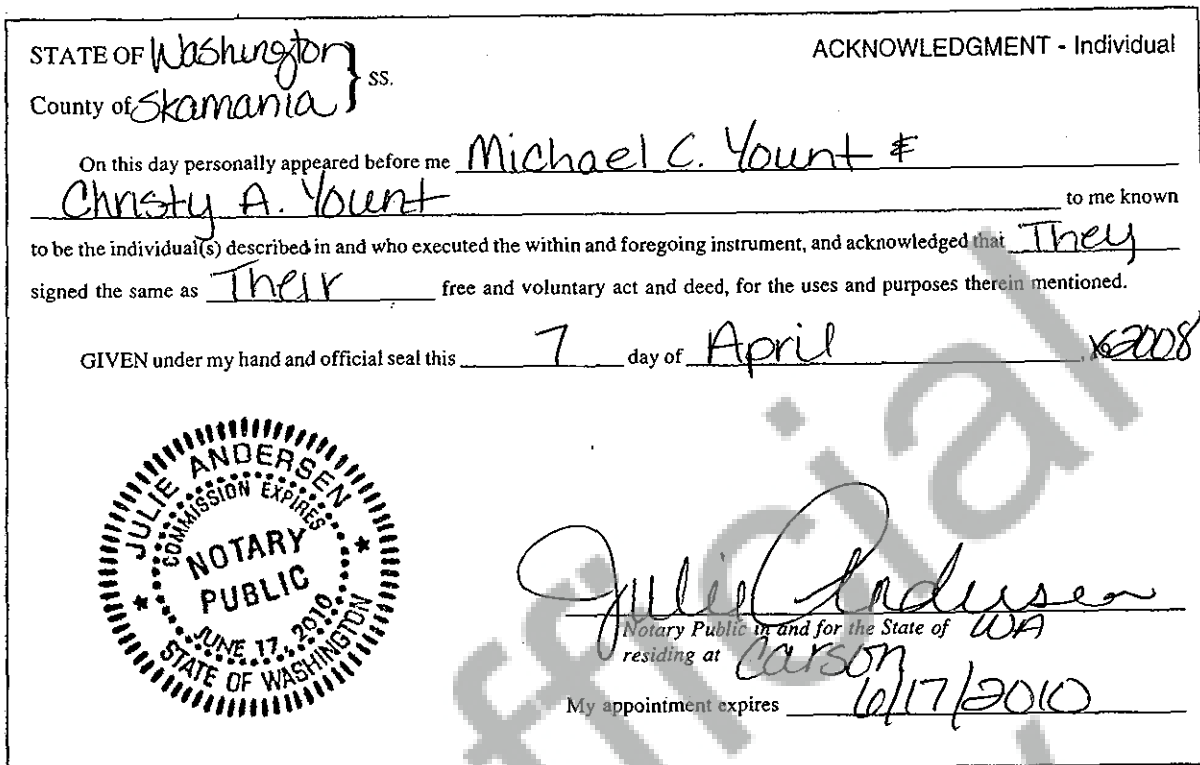 STATE OF Washington } ss.
ACKNOWLEDGMENT - Individual
County of Skamania
On this day personally appeared before me Michael C. Yount &
Christy A. Yount to me known
to be the individual(s) described in and who executed the within and foregoing instrument, and acknowledged that They
signed the same as Their free and voluntary act and deed, for the uses and purposes therein mentioned.
GIVEN under my hand and official seal this 7 day of April, 2008
JULIE ANDERSEN
COMMISSION EXPIRES
NOTARY
PUBLIC
JUNE 17, 2010
STATE OF WASHINGTON
Julie Andersen
Notary Public in and for the State of WA
residing at Carson
My appointment expires 6/17/2010
fficial